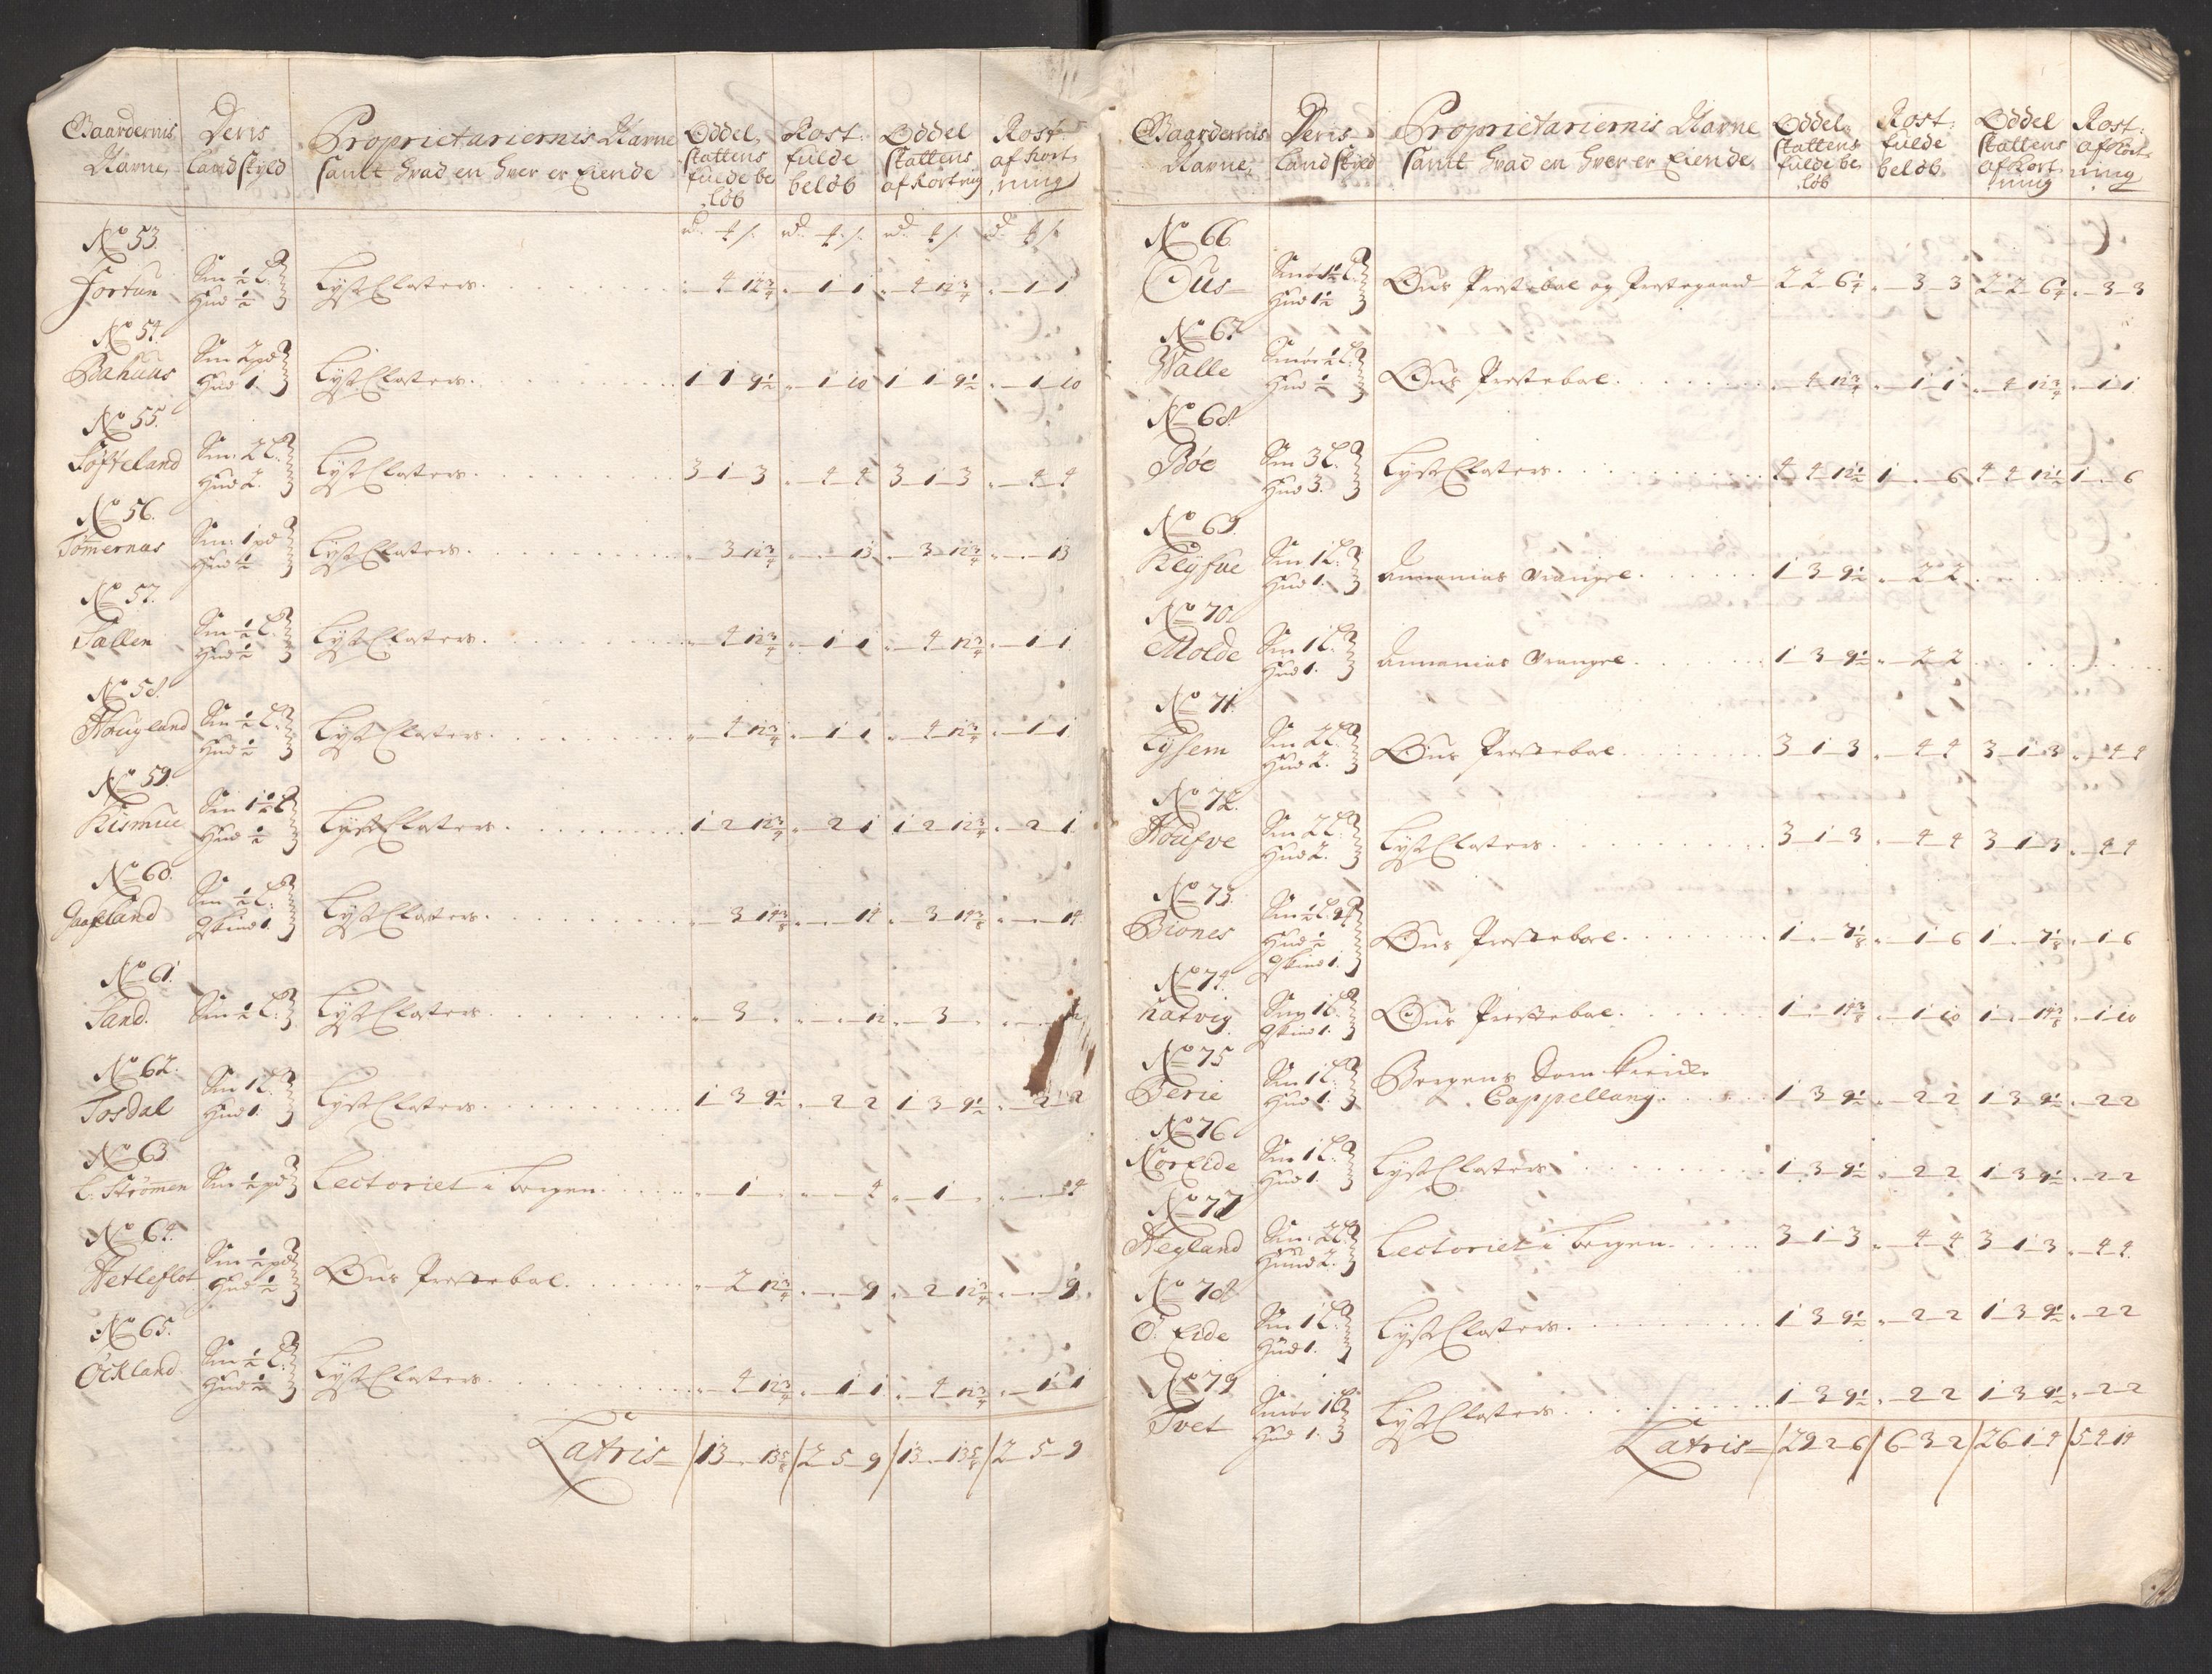 Gaardernis Nafne, | Deris Landskyld | Proprietariernis Nafne samt hvad en hver er Eiende | Oddel, skattens fulde be løb | Rost: fulde beløb | Oddel skattens afkortnig | Rost afkort, ning
rd. ƒ s. | rd. ƒ. s. | rd. ƒ s. | rd ƒ s
No 53.
Fortun | Sm ½ L. Hud ½ | Lyse Closters | " 4 12¾ | " 1 1 | " 4 12¾ | " 1 1
No 54.
Bahuus | Sm 2 pd Hud 1. | Lyse Closters | 1 1 9½ | " 1 10 | 1 1 9½ | " 1 10
No 55.
Søfteland | Sm: 2 L. Hud 2. | Lyse Closters | 3 1 3 | " 4 4 | 3 1 3 | " 4 4
No 56.
Tømernæs | Sm: 1 pd Hud ½ | Lyse Closters | " 3 12¾ | " " 13 | " 3 12¾ | " " 13
No 57.
Sallen | Sm ½ L. Hud ½ | Lyse Closters | " 4 12¾ | " 1 1 | " 4 12¾ | " 1 1
No 58.
Hougland | Sm ½ L. Hud ½ | Lyse Closters | " 4 12¾ | " 1 1 | " 4 12¾ | " 1 1
No 59.
Kismul | Sm 1½ L Hud ½ | Lyse Closters | 1 2 12¾ | " 2 1 | 1 2 12¾ | " 2 1
No 60.
Sm ½ L. Gskind 1. | Lyse Closters | " 3 14⅜ | " " 14 | " 3 14⅜ | " " 14
No 61.
Sand. | Sm ½ L. | Lyse Closters | " 3 " | " " 12 | " 3 " | " "
No 62.
Tosdal | Sm 1 L Hud 1. | Lyse Closters | 1 3 9½ | " 2 2 | 1 3 9½ | " 2 2
No 63
L. Strømen | Sm ½ pd | Lectoriet i bergen | " 1 " | " " 4 | " 1 " | " " 4
No 64.
Hetleflot | Sm ½ pd Hud ½ | Ous Prestebol | " 2 12¾ | " " 9 | " 2 12¾ | " " 9
No 65.
Öckland | Sm ½ L. Hud ½ | Lyse Closters | " 4 12¾ | " 1 1 | " 4 12¾ | " 1 1
Latris | 13 " 13⅝ | 2 5 9 | 13 " 13⅝ | 2 5 9
Gaardernis Nafne, | Deris Landskyld | Proprietariernis Nafne samt hvad en hver er Eiende | Oddel, skattens fulde be, løb | Rost: fulde beløb. | Oddel skattens afkort ning | Rost: afkort, ning
No 66
Ous | Smør 1½ L. Hud 1½ | Ous Prestebol og Prestegaard | 2 2 6¼ | " 3 3 | 2 2 6¼ | " 3 3
No 67.
Walle | Smør ½ L. Hud ½ | Ous Prestebol | " 4 12¾ | " 1 1 | " 4 12¾ | " 1 1
No 68.
Bøe | Sm 3 L. Hud 3. | Lyse Closters | 4 4 12½ | 1 " 6 | 4 4 12½ | 1 " 6
No 69.
Røyfve | Sm 1 L. Hud 1. | Annanias Vrangel | 1 3 9½ | " 2 2
No 70.
Molde | Sm 1 L. Hud 1. | Annanias Vrangel | 1 3 9½ | " 2 2
No 71.
Lyssem | Sm 2 L. Hud 2. | Ous Prestebol | 3 1 3 | " 4 4 | 3 1 3 | " 4 4
No 72.
Houfve | Sm 2 L. Hud 2. | Lyse Closters | 3 1 3 | " 4 4 | 3 1 3 | " 4 4
No 73.
Biones | Hud ½ Gskind 1. | Ous Prestebol | 1 " 7⅛ | " 1 6 | 1 " 7⅛ | " 1 6
No 74.
Hatvig | Sm 1 L Gskind 1. | Ous Prestebol | 1 " 14⅜ | " 1 10 | 1 " 14⅜ | " 1 10
No 75
Ferie | Sm 1 L. Hud 1. | Bergens Dom kircke Cappellanj | 1 3 9½ | " 2 2 | 1 3 9½ | " 2 2
No 76
Nor Eide | Sm 1 L. Hud 1. | Lyse Closters | 1 3 9½ | " 2 2 | 1 3 9½ | " 2 2
No 77
Hegland | Sm: 2 L. Hund 2. | Lectoriet i bergen | 3 1 3 | " 4 4 | 3 1 3 | " 4 4
No 78
Ö. Eide | Sm 1 L. Hud 1. | Lyse Closters | 1 3 9½ | " 2 2 | 1 3 9½ | " 2 2
No 79
Tvet | Smør 1 L Hud 1. | Lyse Closters | 1 3 9½ | " 2 2 | 1 3 9½ | " 2 2
Latris | 29 2 6 | 6 3 2 | 26 1 4 | 5 4 14